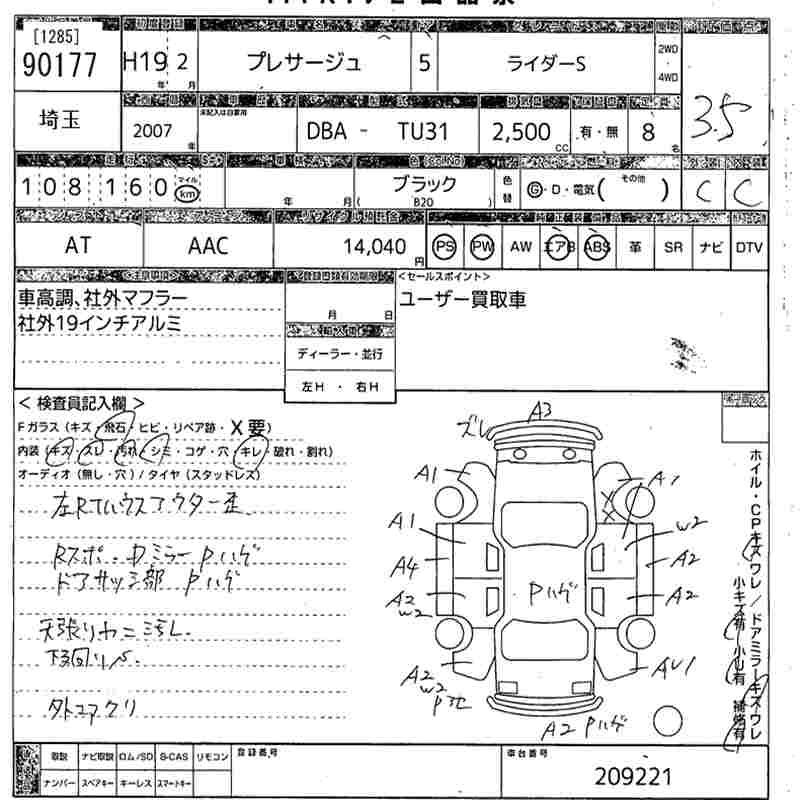 [1285]
90177 H19 2 プレサージュ 5 ライダーS 2WD 4WD
年 月
埼玉 2007 年 未記入は自家用 DBA - TU31 2,500 CC 有・無 8 名 3.5
108160 マイル km 年 月 ブラック ( B20 ) 色替 G・D・電気( その他 ) C C
AT AAC 14,040 円 PS PW AW エアB ABS 革 SR ナビ DTV
車高調、社外マフラー
社外19インチアルミ
月 日
ディーラー・並行
左H ・ 右H
<セールスポイント>
ユーザー買取車
< 検査員記入欄 >
Fガラス (キズ・飛石・ヒビ・リペア跡・X要)
内装 (キズ・スレ・汚れ・シミ・コゲ・穴・キレ・破れ・割れ)
オーディオ (無し・穴) / タイヤ (スタッドレス)
Rスポ・Dミラー Pハゲ
ドアサッシ部 Pハゲ
ズレ A3
A1 A1
A1 W2
A4 A2
A2 W2 Pハゲ A2
A2 W2 AU1
A2 Pハゲ
ホイル・CPキズワレ/ドアミラーキズワレ
小キズ有 小凹有 補修有
取説 ナビ取説 ロム/SD B-CAS リモコン 登録番号 車台番号
ナンバー スペアキー キーレス スマートキー 209221